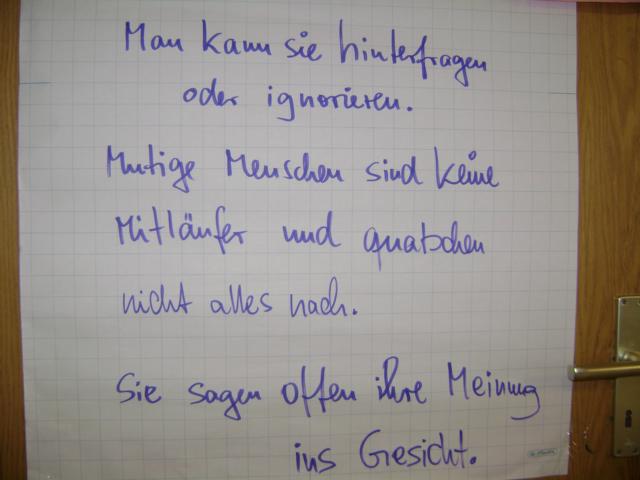 Man kann sie hinterfragen
oder ignorieren.
Mutige Menschen sind keine
Mitläufer und quatschen
nicht alles nach.
Sie sagen offen ihre Meinung
ins Gesicht.